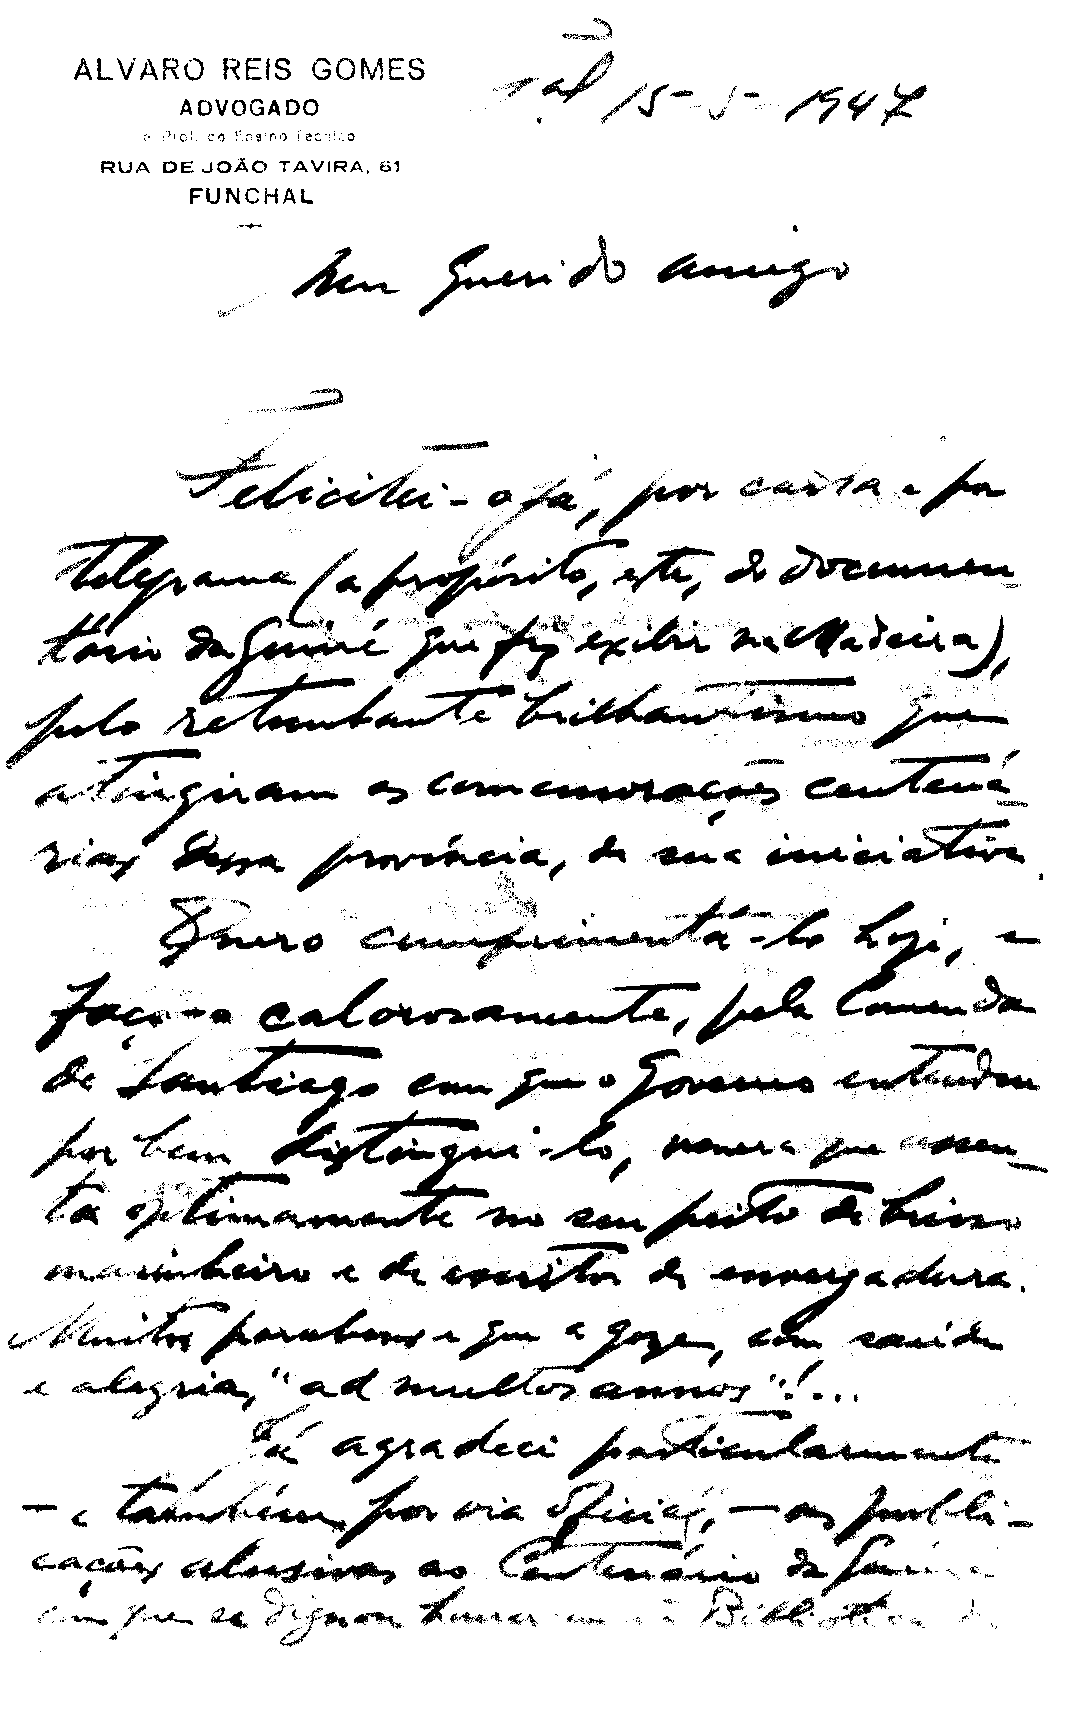 ALVARO REIS GOMES
ADVOGADO
e Prof. do Ensino Técnico
RUA DE JOÃO TAVIRA, 61
FUNCHAL
15-5-1947
Meu Querido amigo
Felicitei-o já, por carta e por
telegrama (a propósito, este, do documen
tário da Guiné que fiz exibir na Madeira),
pelo retumbante brilhantismo que
atingiram as comemorações centená
rias dessa província, de sua iniciativa.
Quero cumprimentá-lo hoje, e
faço-o calorosamente, pela Comenda
de Santiago com que o Governo entendeu
por bem distingui-lo, venera que assen
ta optimamente no seu peito de brioso
marinheiro e de escritor de envergadura.
Muitos parabens e que a goze, com saúde
e alegria, "ad multos annos"!...
Já agradeci particularmente
- e também por via oficial, - as publi-
cações alusivas ao Centenário da Guiné
em que se dignou honrar a Biblioteca de